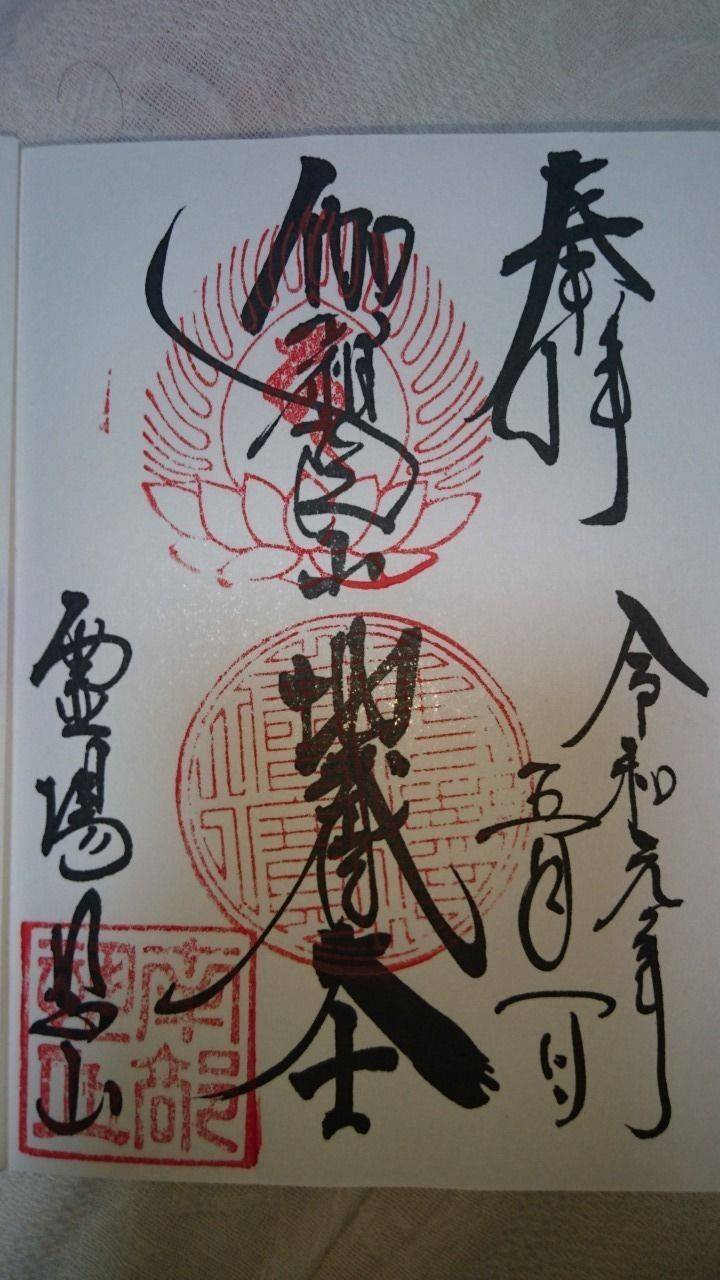 奉拝
令和元年
五月一日
伽羅陀山
地蔵大士
霊場恐山
南部
恐山